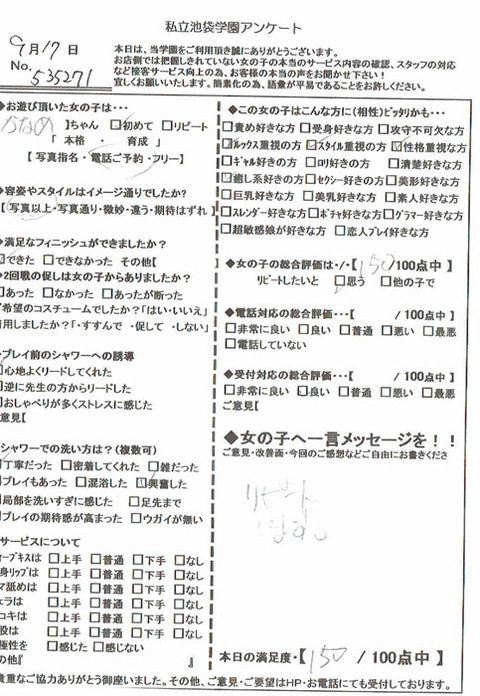 私立池袋学園アンケート
9月17日
No. 535271
本日は、当学園をご利用頂き誠にありがとうございます。
お店側では把握しきれていない女の子の本当のサービス内容の確認、スタッフの対応
など接客サービス向上の為、お客様の本当の声をお聞かせ下さい！
宜しくお願いいたします。簡素化の為、語彙が平易であることをお許しください。
◆お遊び頂いた女の子は・・・
かなめ 】ちゃん ☑初めて □リピート
「 本格 ・ 育成 」
【 写真指名・電話ご予約・フリー】
◆容姿やスタイルはイメージ通りでしたか？
【写真以上・写真通り・微妙・違う・期待はずれ 】
◆満足なフィニッシュができましたか？
☑できた □できなかった その他【
◆2回戦の促しは女の子からありましたか？
□あった □なかった □あったが断った
希望のコスチュームでしたか？「はい・いいえ」
用しましたか？・すすんで ・促して ・しない」
プレイ前のシャワーへの誘導
心地よくリードしてくれた
□逆に先生の方からリードした
□おしゃべりが多くストレスに感じた
意見【
シャワーでの洗い方は？（複数可）
丁寧だった □密着してくれた □雑だった
プレイもあった □混浴した ☑興奮した
局部を洗いすぎに感じた □足先まで
プレイの期待感が高まった □ウガイが無い
サービスについて
ィープキスは □上手 □普通 □下手 □なし
身リップは □上手 □普通 □下手 □なし
マ舐めは □上手 □普通 □下手 □なし
ェラは □上手 □普通 □下手 □なし
コキは □上手 □普通 □下手 □なし
股は □上手 □普通 □下手 □なし
極性を □感じた □感じない
の他『 』
◆この女の子はこんな方に（相性）ピッタリかも・・・
□責め好きな方 □受身好きな方 □攻守不可欠な方
☑ルックス重視の方 ☑スタイル重視の方 ☑性格重視な方
□ギャル好きの方 □ロリ好きの方 □清楚好きな方
☑癒し系好きの方 □セクシー好きの方 □美形好きな方
□巨乳好きな方 □美乳好きな方 □素人好きな方
□スレンダー好きな方 □ポチャ好きな方 □グラマー好きな方
□超敏感娘が好きな方 □恋人プレイ好きな方
◆女の子の総合評価は・・・【 150 /100点中 】
リピートしたいと ☑思う □他の子で
◆電話対応の総合評価・・・【 /100点中 】
□非常に良い □良い □普通 □悪い □最悪
□電話していない
◆受付対応の総合評価・・・【 /100点中 】
□非常に良い ☑良い □普通 □悪い □最悪
ご意見【
◆女の子へ一言メッセージを！！
ご意見・改善画・今回のご感想などご自由にお書きくださ
リピート
します。
本日の満足度・【 150 /100点中 】
貴重なご協力ありがとう御座いました。その他、ご意見・ご要望はHP・お電話にても受付しております。